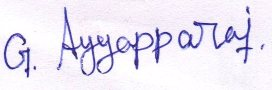 G. Ayyapparaj.